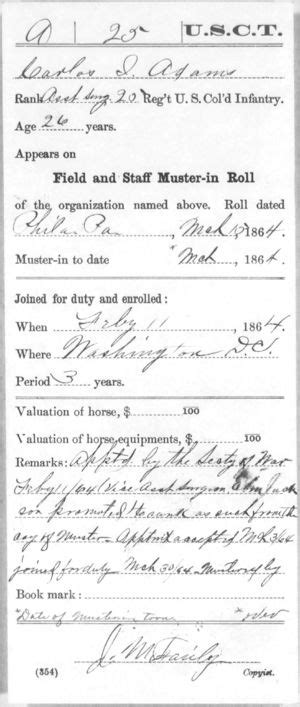 A | 25 | U.S.C.T.
Carlos J. Adams
Rank Asst Surg 25 Reg't U. S. Col'd Infantry.
Age 26 years.
Appears on
Field and Staff Muster-in Roll
of the organization named above. Roll dated
Phila Pa , Mch 15, 1864.
Muster-in to date * Mch , 1864.
Joined for duty and enrolled:
When Feby 11 , 1864.
Where Washington D.C.
Period 3 years.
Valuation of horse, $ 100
Valuation of horse equipments, $ 100
Remarks: Apptd by the Secty of War
Feby 11/64 (Vice Asst Surgeon Jack
son promoted) to rank as such from the
day of Muster. Apptmt accepted Mch 3/64
joined for duty Mch 30/64 Mustered by
Book mark :
*Date of muster-in
J. M.
(354) Copyist.